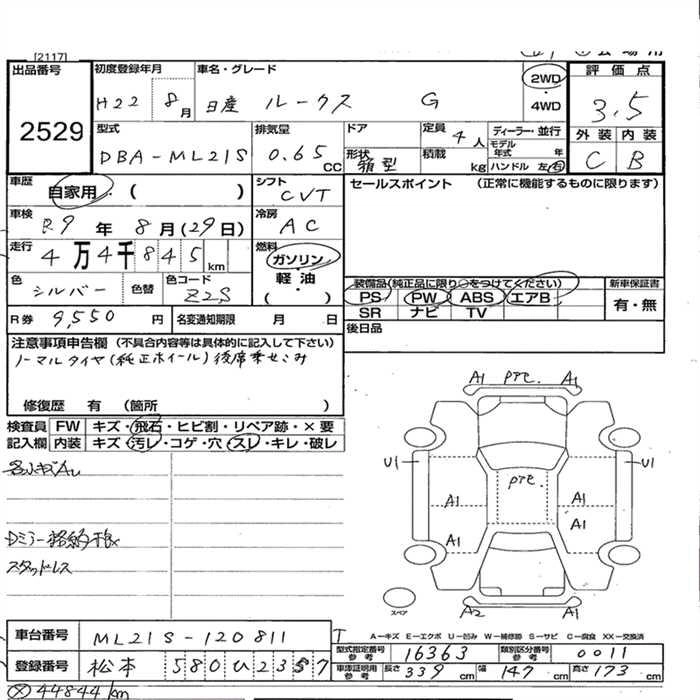 [2117]
出品番号 2529
初度登録年月 H22 8月
車名・グレード 日産 ルークス G
2WD・4WD
評価点 3.5
外装 C 内装 B
型式 DBA-ML21S
排気量 0.65 CC
ドア
形状 箱型
定員 4人
積載 kg
ディーラー・並行
モデル年式 年
ハンドル 左・右
車歴 自家用 ( )
シフト CVT
セールスポイント (正常に機能するものに限ります)
車検 R9年 8月(29日)
冷房 AC
走行 4万4千845km
燃料 ガソリン
軽・油
( )
色 シルバー 色替 色コード Z2S
装備品(純正品に限り○をつけてください) 新車保証書
PS PW ABS エアB 有・無
SR ナビ TV
R券 9,550円 名変通知期限 月 日
後日品
注意事項申告欄 (不具合内容等は具体的に記入して下さい)
ノーマルタイヤ(純正ホイール)後席乗せこみ
修復歴 有 (箇所 )
検査員記入欄 FW キズ・飛石・ヒビ割・リペア跡・×要
内装 キズ・汚レ・コゲ・穴・スレ・キレ・破レ
A1 PTC. A1
U1 U1
PTC.
A1 A1
A1 A1
Dミラー格納不良
スタッドレス
スペア
A2 A1
車台番号 ML21S-120811
A-キズ E-エクボ U-凹み W-補修跡 S-サビ C-腐食 XX-交換済
型式指定番号 参考 16363 類別区分番号 参考 0011
登録番号 松本 580 ひ 2357
車庫証明用 参考 長さ 339cm 幅 147cm 高さ 173cm
44844km